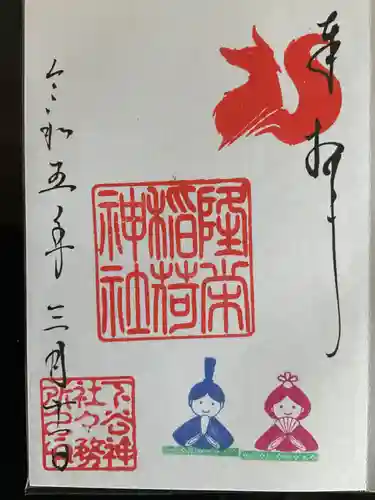 奉拝
隆栄
稲荷
神社
令和五年三月十一日
下谷神
社々務